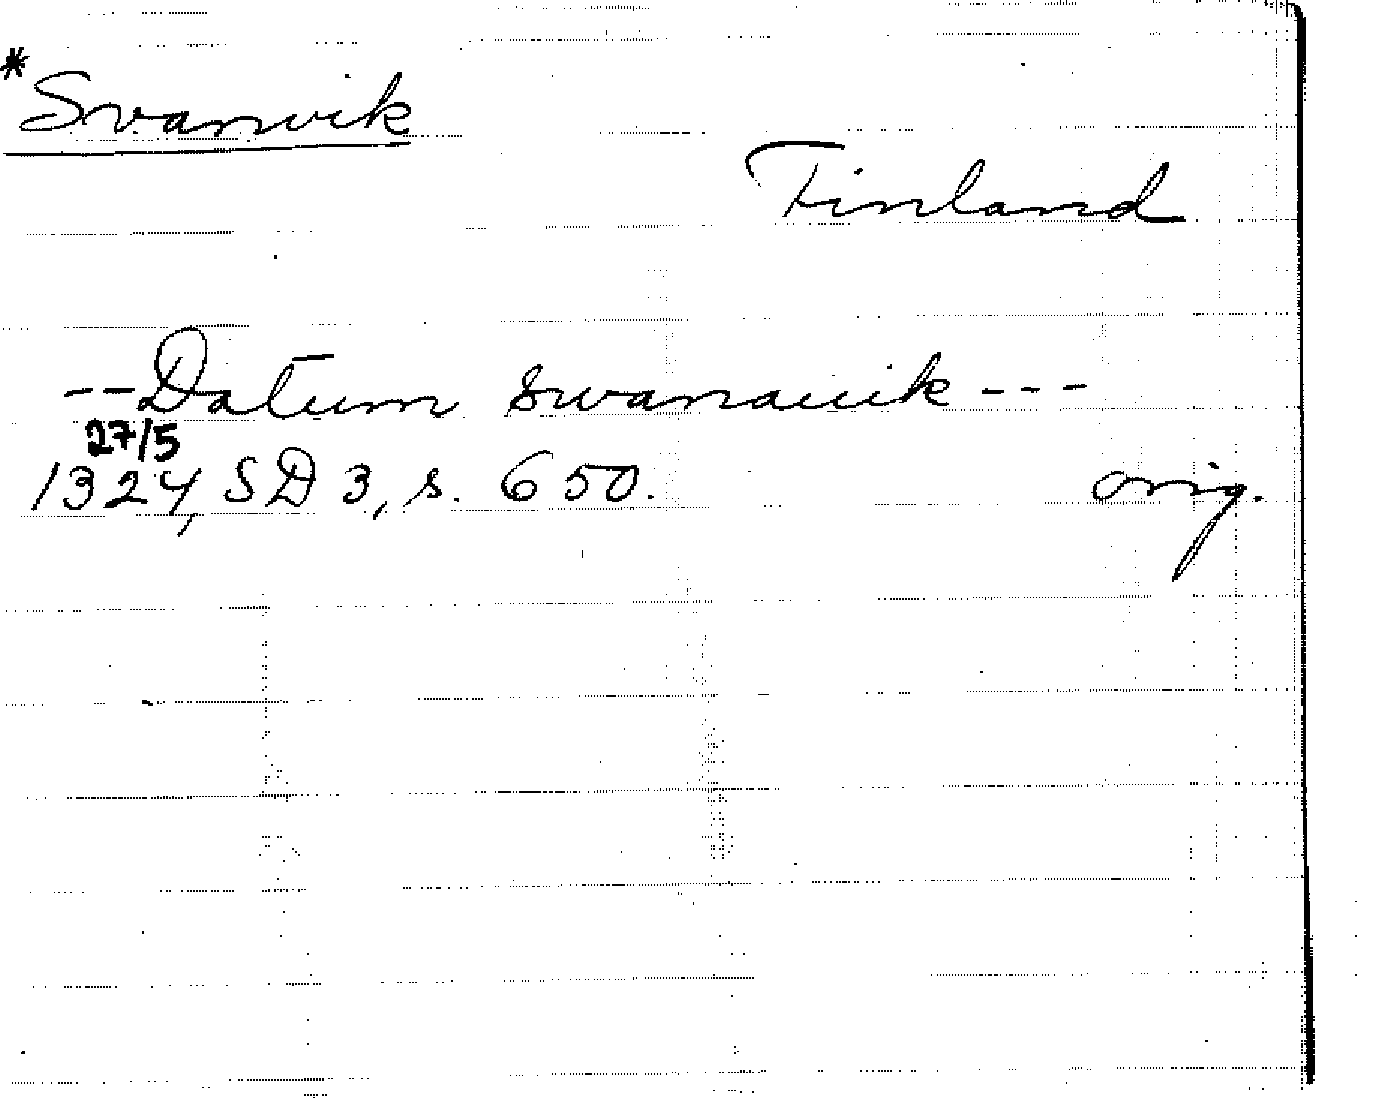 *Svanvik
Finland
--Datum Swanauik---
27/5
1324, SD 3, s. 650.
orig.